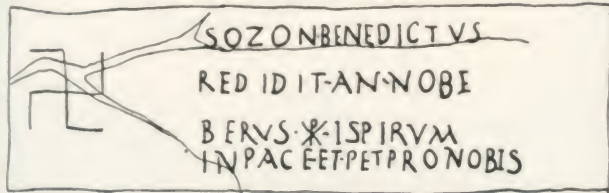 SOZON·BENEDICTVS
REDIDIT·AN·NOBE
BERVS·☧·ISPIRVM
IN PACE·ET·PET·PRO NOBIS